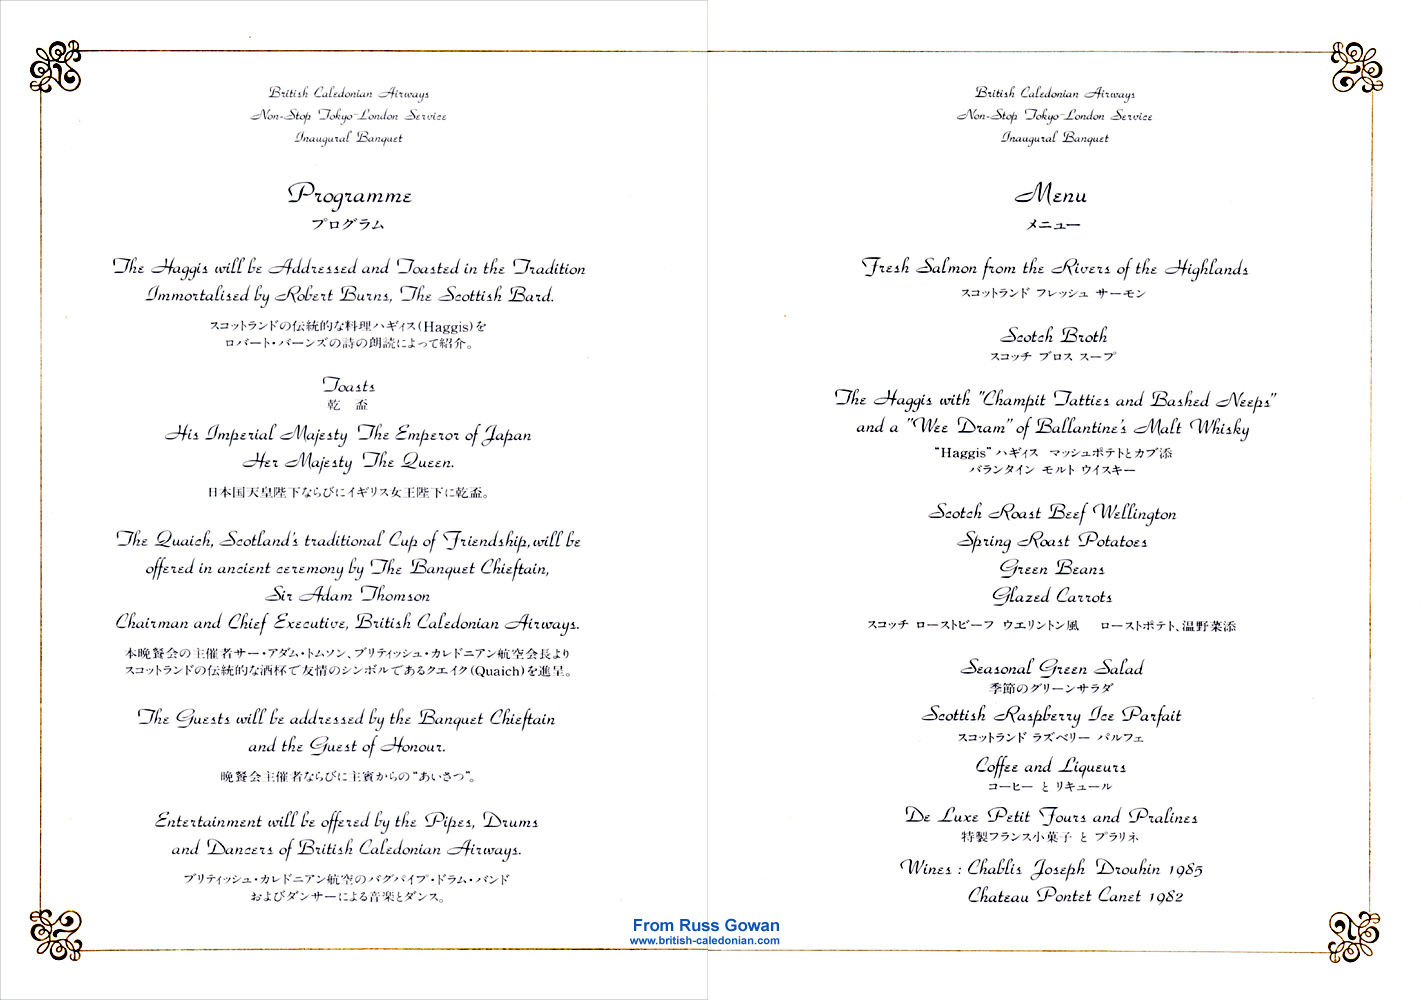 British Caledonian Airways
Non-Stop Tokyo-London Service
Inaugural Banquet
Programme
プログラム
The Haggis will be Addressed and Toasted in the Tradition
Immortalised by Robert Burns, The Scottish Bard.
スコットランドの伝統的な料理ハギィス(Haggis)を
ロバート・バーンズの詩の朗読によって紹介。
Toasts
乾 盃
His Imperial Majesty The Emperor of Japan
Her Majesty The Queen.
日本国天皇陛下ならびにイギリス女王陛下に乾盃。
The Quaich, Scotland's traditional Cup of Friendship, will be
offered in ancient ceremony by The Banquet Chieftain,
Sir Adam Thomson
Chairman and Chief Executive, British Caledonian Airways.
本晩餐会の主催者サー・アダム・トムソン、ブリティッシュ・カレドニアン航空会長より
スコットランドの伝統的な酒杯で友情のシンボルであるクエイク(Quaich)を進呈。
The Guests will be addressed by the Banquet Chieftain
and the Guest of Honour.
晩餐会主催者ならびに主賓からの“あいさつ”。
Entertainment will be offered by the Pipes, Drums
and Dancers of British Caledonian Airways.
ブリティッシュ・カレドニアン航空のバグパイプ・ドラム・バンド
およびダンサーによる音楽とダンス。
British Caledonian Airways
Non-Stop Tokyo-London Service
Inaugural Banquet
Menu
メニュー
Fresh Salmon from the Rivers of the Highlands
スコットランド フレッシュ サーモン
Scotch Broth
スコッチ ブロス スープ
The Haggis with "Champit Tatties and Bashed Neeps"
and a "Wee Dram" of Ballantine's Malt Whisky
“Haggis” ハギィス マッシュポテトとカブ添
バランタイン モルト ウイスキー
Scotch Roast Beef Wellington
Spring Roast Potatoes
Green Beans
Glazed Carrots
スコッチ ローストビーフ ウエリントン風 ローストポテト、温野菜添
Seasonal Green Salad
季節のグリーンサラダ
Scottish Raspberry Ice Parfait
スコットランド ラズベリー パルフェ
Coffee and Liqueurs
コーヒー と リキュール
De Luxe Petit Fours and Pralines
特製フランス小菓子 と プラリネ
Wines : Chablis Joseph Drouhin 1985
Chateau Pontet Canet 1982
From Russ Gowan
www.british-caledonian.com